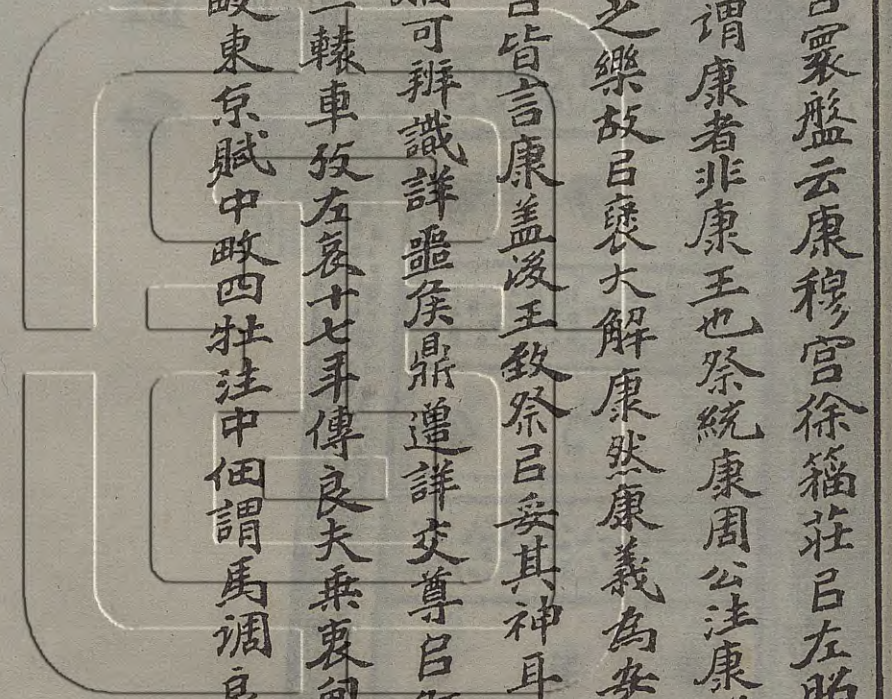 㠯寰盤云康穆宮徐籀莊㠯左昭
謂康者非康王也祭統康周公注康
之樂故㠯襃大解康然康義為安
皆言康蓋後王致祭㠯妥其神耳
可辨識詳噩矦鼎遣詳交尊㠯
一轅車攷左哀十七年傳良夫乗衷甸
東京賦中畋四牡注中佃謂馬調良